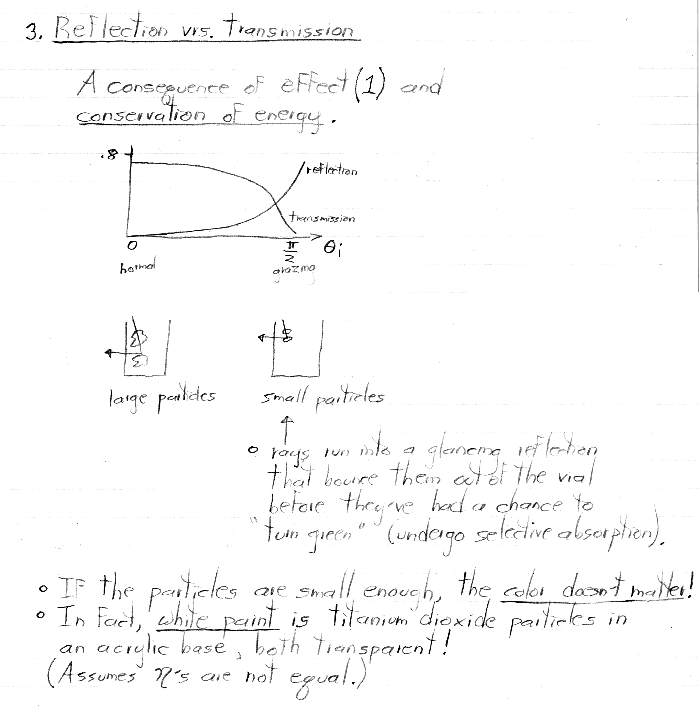 3. Reflection vrs. Transmission
A consequence of effect (1) and
conservation of energy.
.8
reflection
transmission
0
π/2
θi
normal
grazing
large particles
small particles
• rays run into a glancing reflection
that bounce them out of the vial
before they've had a chance to
"turn green" (undergo selective absorption).
• If the particles are small enough, the color doesn't matter!
• In Fact, white paint is titanium dioxide particles in
an acrylic base, both transparent!
(Assumes η's are not equal.)